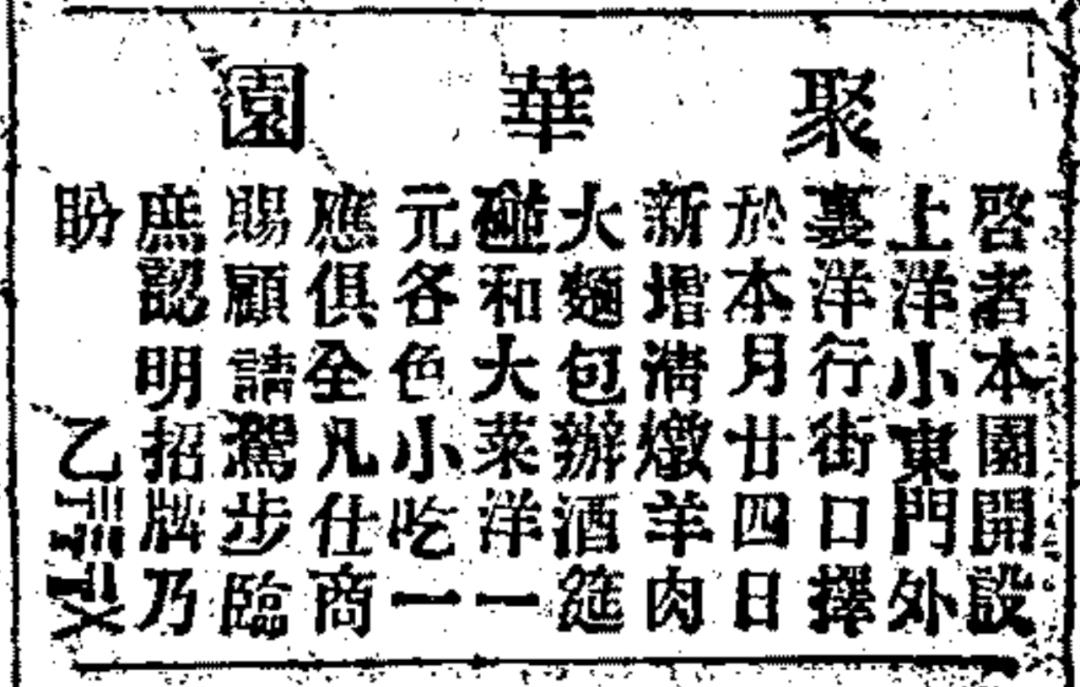 聚華園
啓者本園開設
上洋小東門外
裏洋行街口擇
於本月廿四日
新增清燉羊肉
大麵包辦酒筵
碰和大菜洋一
元各色小吃一
應俱全凡仕商
賜顧請駕步臨
庶認明招牌乃
盼 乙